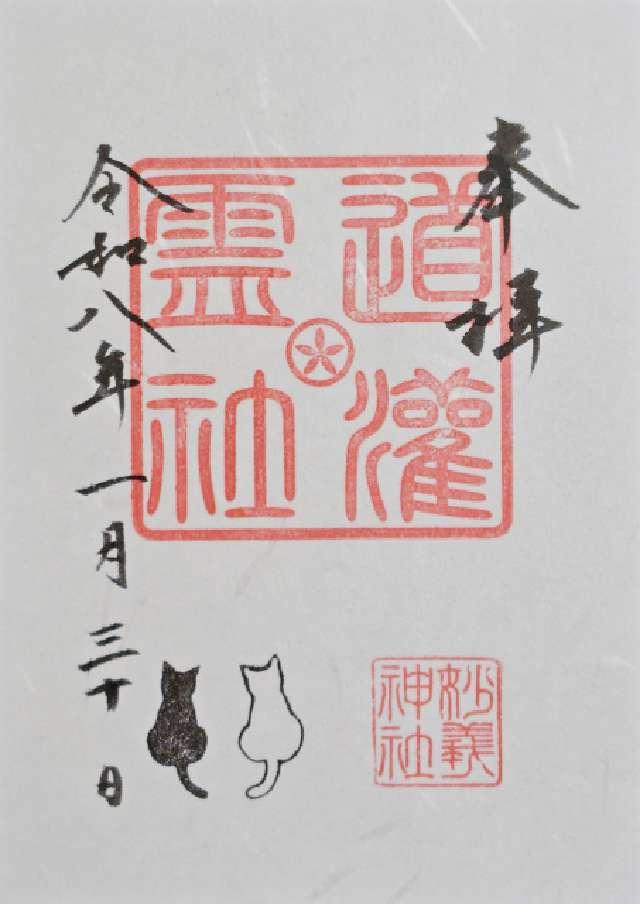 奉拝
道灌
霊社
妙義
神社
令和八年一月三十日